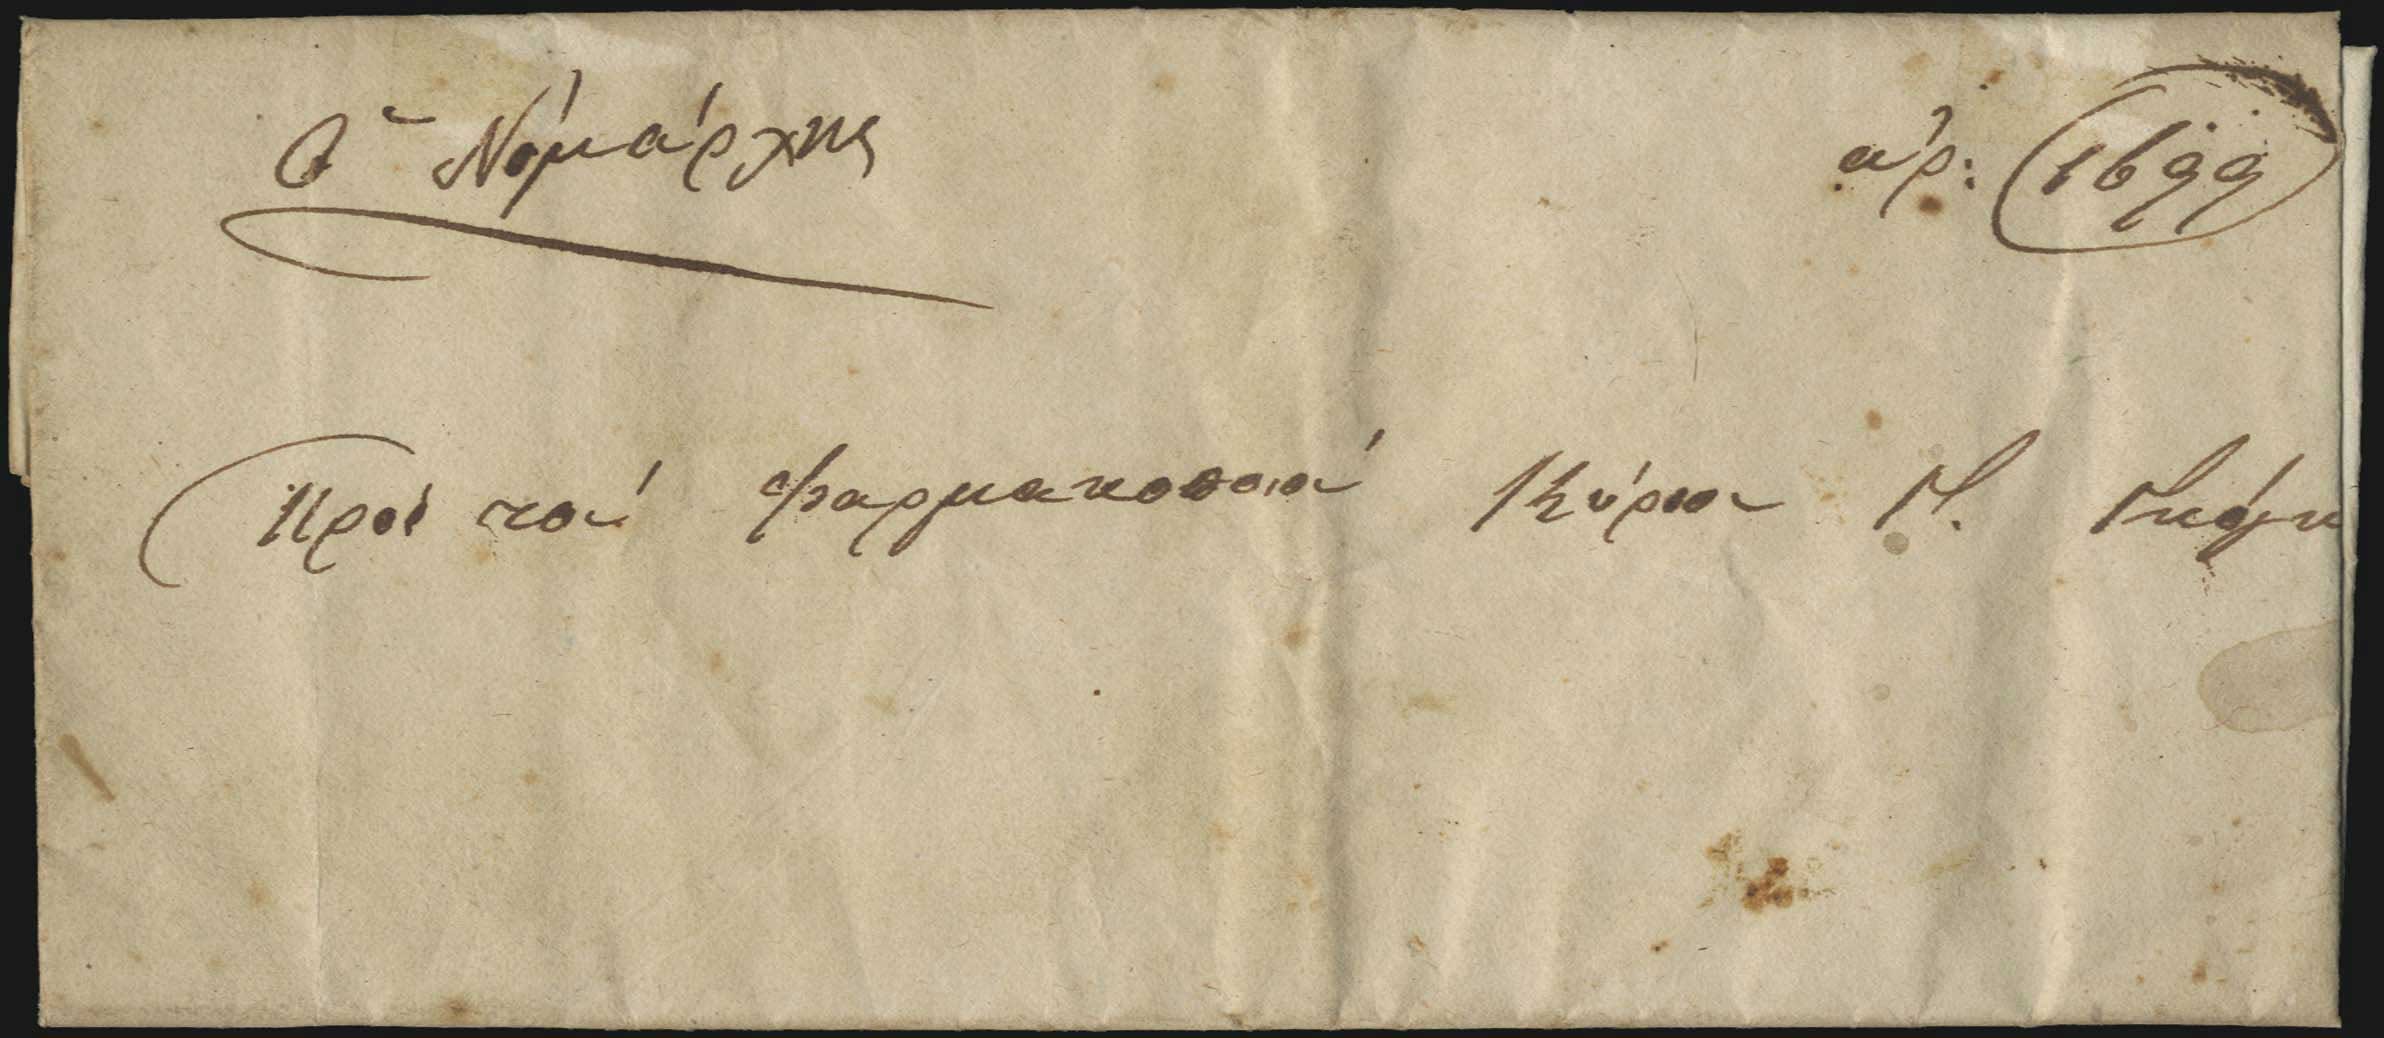 Ὁ Νομάρχης
ἀρ: 1699
Πρὸς τὸν φαρμακοποιὸν Κύριον